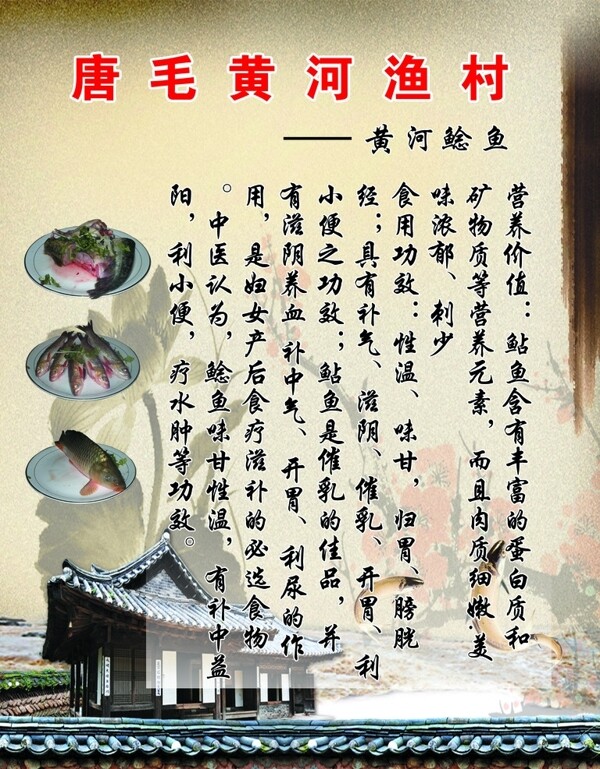 唐毛黄河渔村
——黄河鲶鱼
营养价值：鲇鱼含有丰富的蛋白质和
矿物质等营养元素，而且肉质细嫩、美
味浓郁、刺少
食用功效：性温、味甘，归胃、膀胱
经；具有补气、滋阴、催乳、开胃、利
小便之功效；鲇鱼是催乳的佳品，并
有滋阴养血补中气、开胃、利尿的作
用，是妇女产后食疗滋补的必选食物
。中医认为，鲶鱼味甘性温，有补中益
阳，利小便，疗水肿等功效。